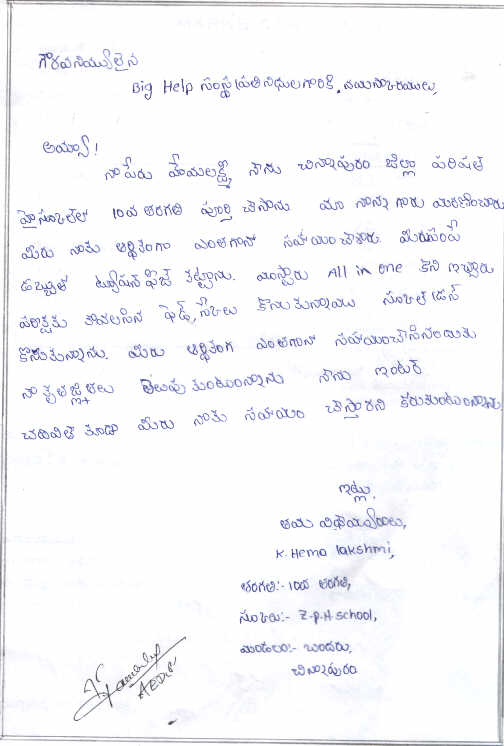 గౌరవనీయులైన
Big Help సంస్థ ప్రతినిధులగారికి, నమస్కారములు,
అయ్యా!
నా పేరు హేమలక్ష్మి నేను చిన్నాపురం జిల్లా పరిషత్
హైస్కూల్‌లో 10వ తరగతి పూర్తి చేసాను మా నాన్న గారు మరణించారు
మీరు నాకు ఆర్థికంగా ఎంతగానో సహాయం చేశారు. మీరు పంపే
డబ్బుతో ట్యూషన్ ఫీజు కట్టాను. మాస్టారు All in one కొని ఇచ్చారు
పరీక్షకు కావలసిన పేడ్, స్కేలు కొనుకున్నాను స్కూల్ డ్రస్
కొనుకున్నాను. మీరు ఆర్థికంగ ఎంతగానో సహాయంచేసినందుకు
నా కృతజ్ఞతలు తెలుపుకుంటున్నాను నేను ఇంటర్
చదివితే కూడా మీరు నాకు సహాయం చేస్తారని కోరుకుంటున్నాను.
ఇట్లు,
తమ విధేయురాలు,
K. Hema lakshmi,
తరగతి:- 10వ తరగతి,
స్కూలు:- Z.P.H school,
మండలం:- బందరు,
చిన్నాపురం